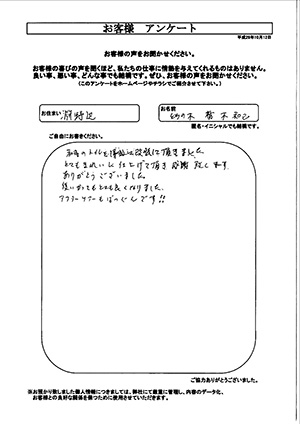 お客様 アンケート
平成26年10月12日
お客様の声をお聞かせください。
お客様の喜びの声を聞くほど、私たちの仕事に情熱を与えてくれるものはありません。
良い事、悪い事、どんな事でも結構です。ぜひ、お客様の声をお聞かせください。
(このアンケートをホームページやチラシでご紹介させて下さい。)
お住まい
お名前
匿名・イニシャルでも結構です。
ご自由にお書きください。
とてもきれいに仕上げて頂き感謝致します
ありがとうございました。
使いかってもとても良くなりました。
アフターケアーもばつぐんです!!
ご協力ありがとうございました。
※お預かり致しました個人情報につきましては、弊社にて厳重に管理し、内容のデータ化、
お客様との良好な関係を保つために使用させていただきます。